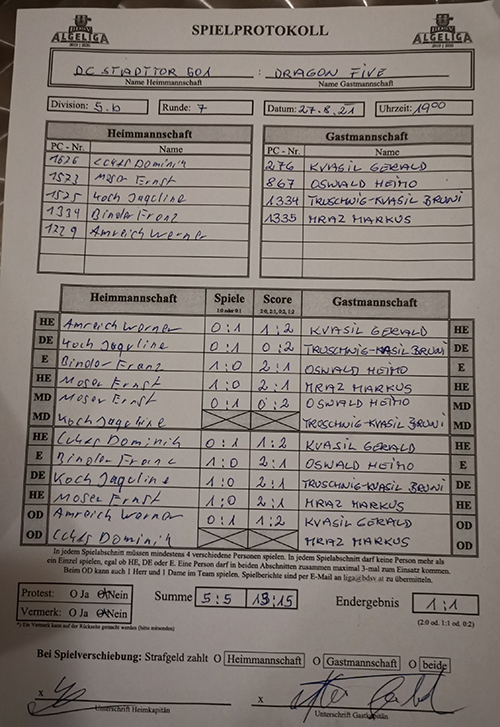 ALGELIGA SPIELPROTOKOLL ALGELIGA
DC STADTTOR 501 : DRAGON FIVE
Name Heimmannschaft Name Gastmannschaft
Division: 5.b Runde: 7 Datum: 27.8.21 Uhrzeit: 19 00
Heimmannschaft Gastmannschaft
PC - Nr. Name PC - Nr. Name
1626 Dominik 276 KVASIL GERALD
1523 Moser Ernst 867 OSWALD HEIMO
1525 Koch Jaqeline 1334 TRUSCHNIG-KVASIL BRUNI
1334 Binder Franz 1335 MRAZ MARKUS
1229 Amreich Werner
Heimmannschaft Spiele Score Gastmannschaft
1:0 oder 0:1 2:0, 2:1, 0:2, 1:2
HE Amreich Werner 0:1 1:2 KVASIL GERALD HE
DE Koch Jaqeline 0:1 0:2 TRUSCHNIG-KVASIL BRUNI DE
E Binder Franz 1:0 2:1 OSWALD HEIMO E
HE Moser Ernst 1:0 2:1 MRAZ MARKUS HE
MD Moser Ernst 0:1 0:2 OSWALD HEIMO MD
MD Koch Jaqeline TRUSCHNIG-KVASIL BRUNI MD
HE Dominik 0:1 1:2 KVASIL GERALD HE
E Binder Franz 1:0 2:1 OSWALD HEIMO E
DE Koch Jaqeline 1:0 2:1 TRUSCHNIG-KVASIL BRUNI DE
HE Moser Ernst 1:0 2:1 MRAZ MARKUS HE
OD Amreich Werner 0:1 1:2 KVASIL GERALD OD
OD Dominik MRAZ MARKUS OD
In jedem Spielabschnitt müssen mindestens 4 verschiedene Personen spielen. In jedem Spielabschnitt darf keine Person mehr als
ein Einzel spielen, egal ob HE, DE oder E. Eine Person darf in beiden Abschnitten zusammen maximal 3-mal zum Einsatz kommen.
Beim OD kann auch 1 Herr und 1 Dame im Team spielen. Spielberichte sind per E-Mail an liga@bdsv.at zu übermitteln.
Protest: O Ja O Nein Summe 5:5 13:15 Endergebnis 1:1
Vermerk: O Ja O Nein (2:0 od. 1:1 od. 0:2)
*) Ein Vermerk kann auf der Rückseite gemacht werden (bitte mitsenden)
Bei Spielverschiebung: Strafgeld zahlt O Heimmannschaft O Gastmannschaft O beide
x x
Unterschrift Heimkapitän Unterschrift Gastkapitän